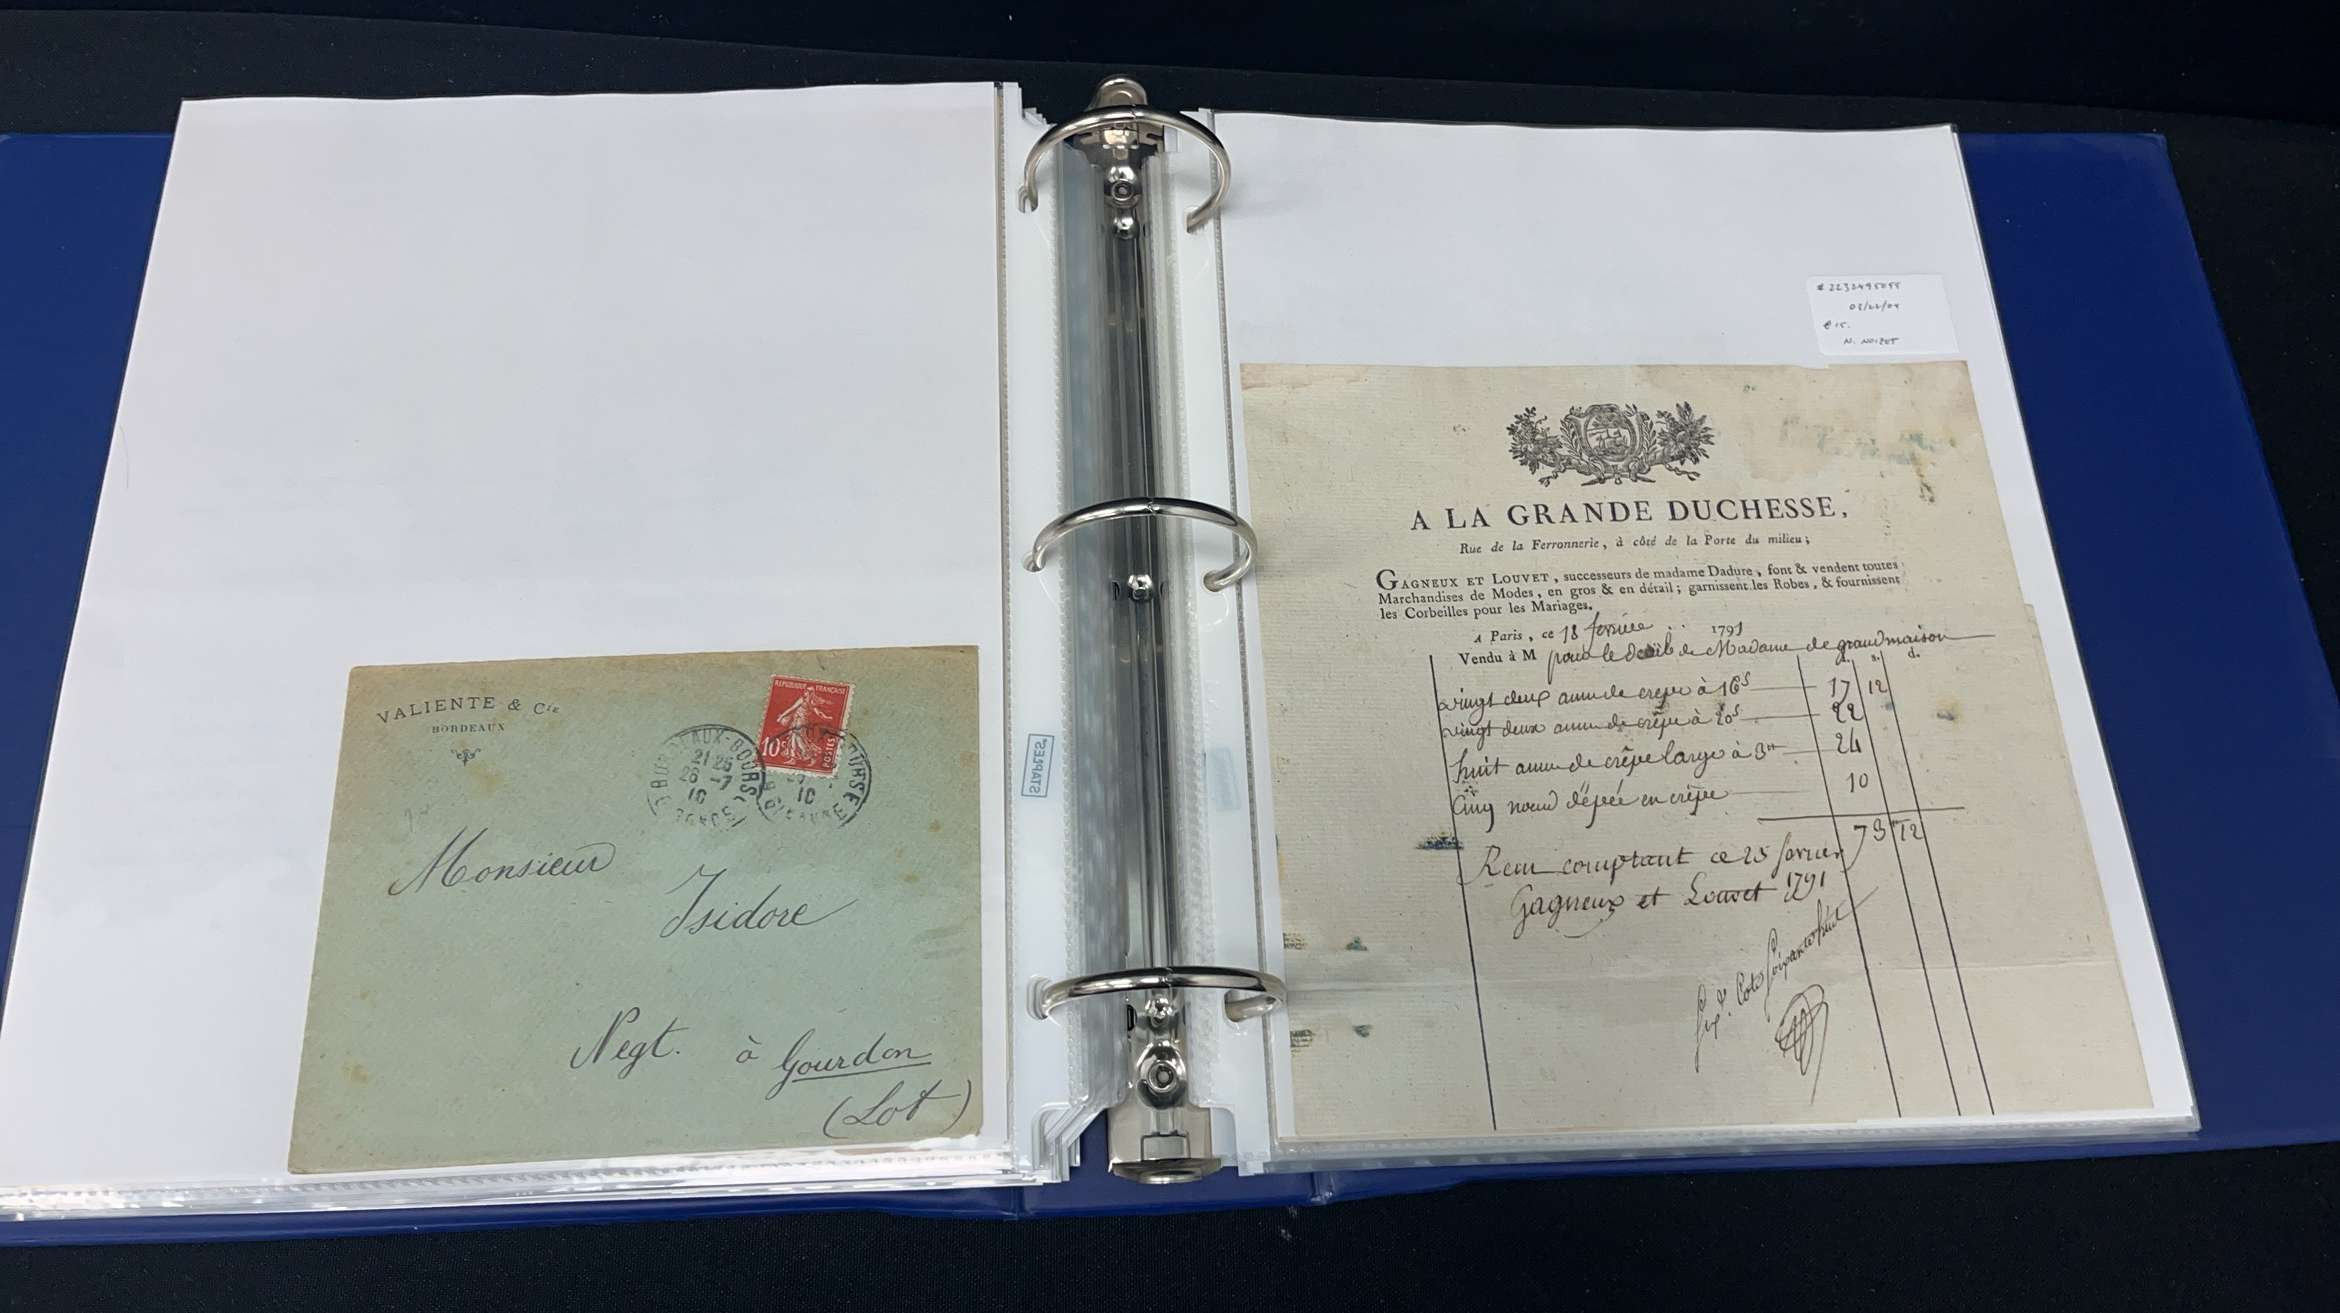 VALIENTE & Cie
BORDEAUX
REPUBLIQUE FRANÇAISE
10c
POSTES
BORDEAUX-BOURSE
21 25
26 -7
10
Monsieur
Isidore
Negt. à Gourdon
(Lot)
STAPLES
€ 15.
N. NOIZET
A LA GRANDE DUCHESSE,
Rue de la Ferronnerie, à côté de la Porte du milieu;
GAGNEUX ET LOUVET, successeurs de madame Dadure, font & vendent toutes
Marchandises de Modes, en gros & en détail; garnissent les Robes, & fournissent
les Corbeilles pour les Mariages.
A Paris, ce 18 fevrier 1791
Vendu à M pour le deüil de Madame de grandmaison
s. d.
vingt deux aune de crepe à 16s 17 12
vingt deux aune de crêpe à 20s 22
huit aune de crêpe large à 3tt 24
Cinq noeud d'épée en crêpe 10
73 12
Recu comptant ce 25 fevrier
Gagneux et Louvet 1791